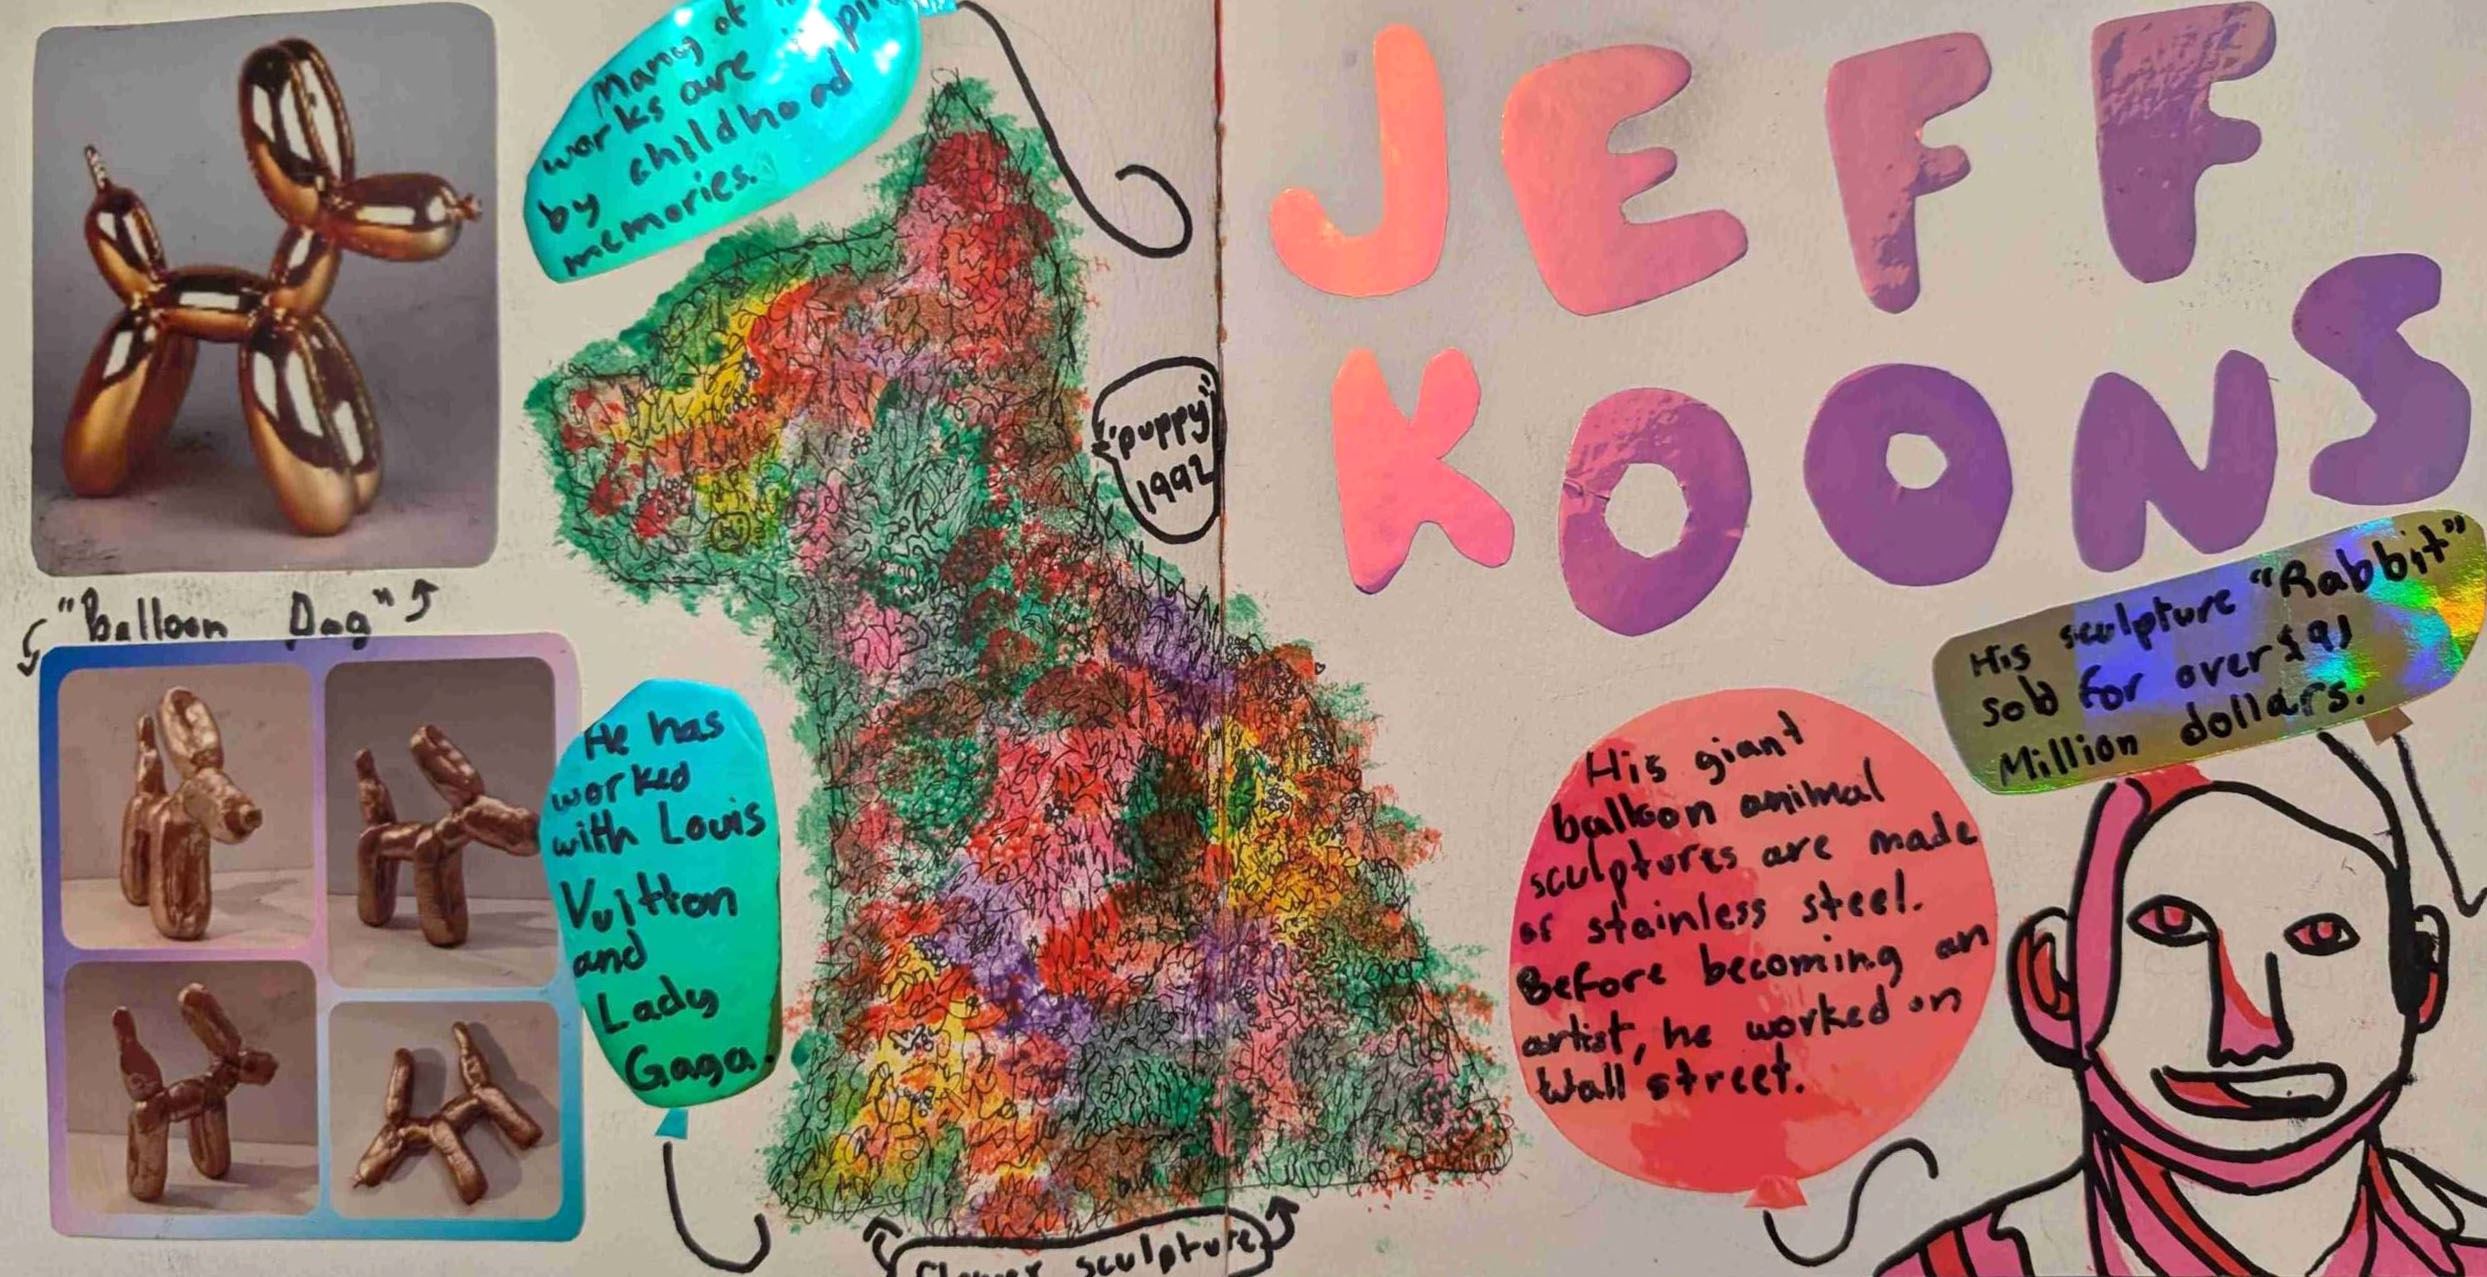 Many of
works are
by childhood
memories.
JEFF
KOONS
"puppy"
1992
"Balloon Dog"
His sculpture "Rabbit"
sold for over $91
Million dollars.
He has
worked
with Louis
Vuitton
and
Lady
Gaga.
His giant
balloon animal
sculptures are made
of stainless steel.
Before becoming an
artist, he worked on
Wall street.
Flower sculpture